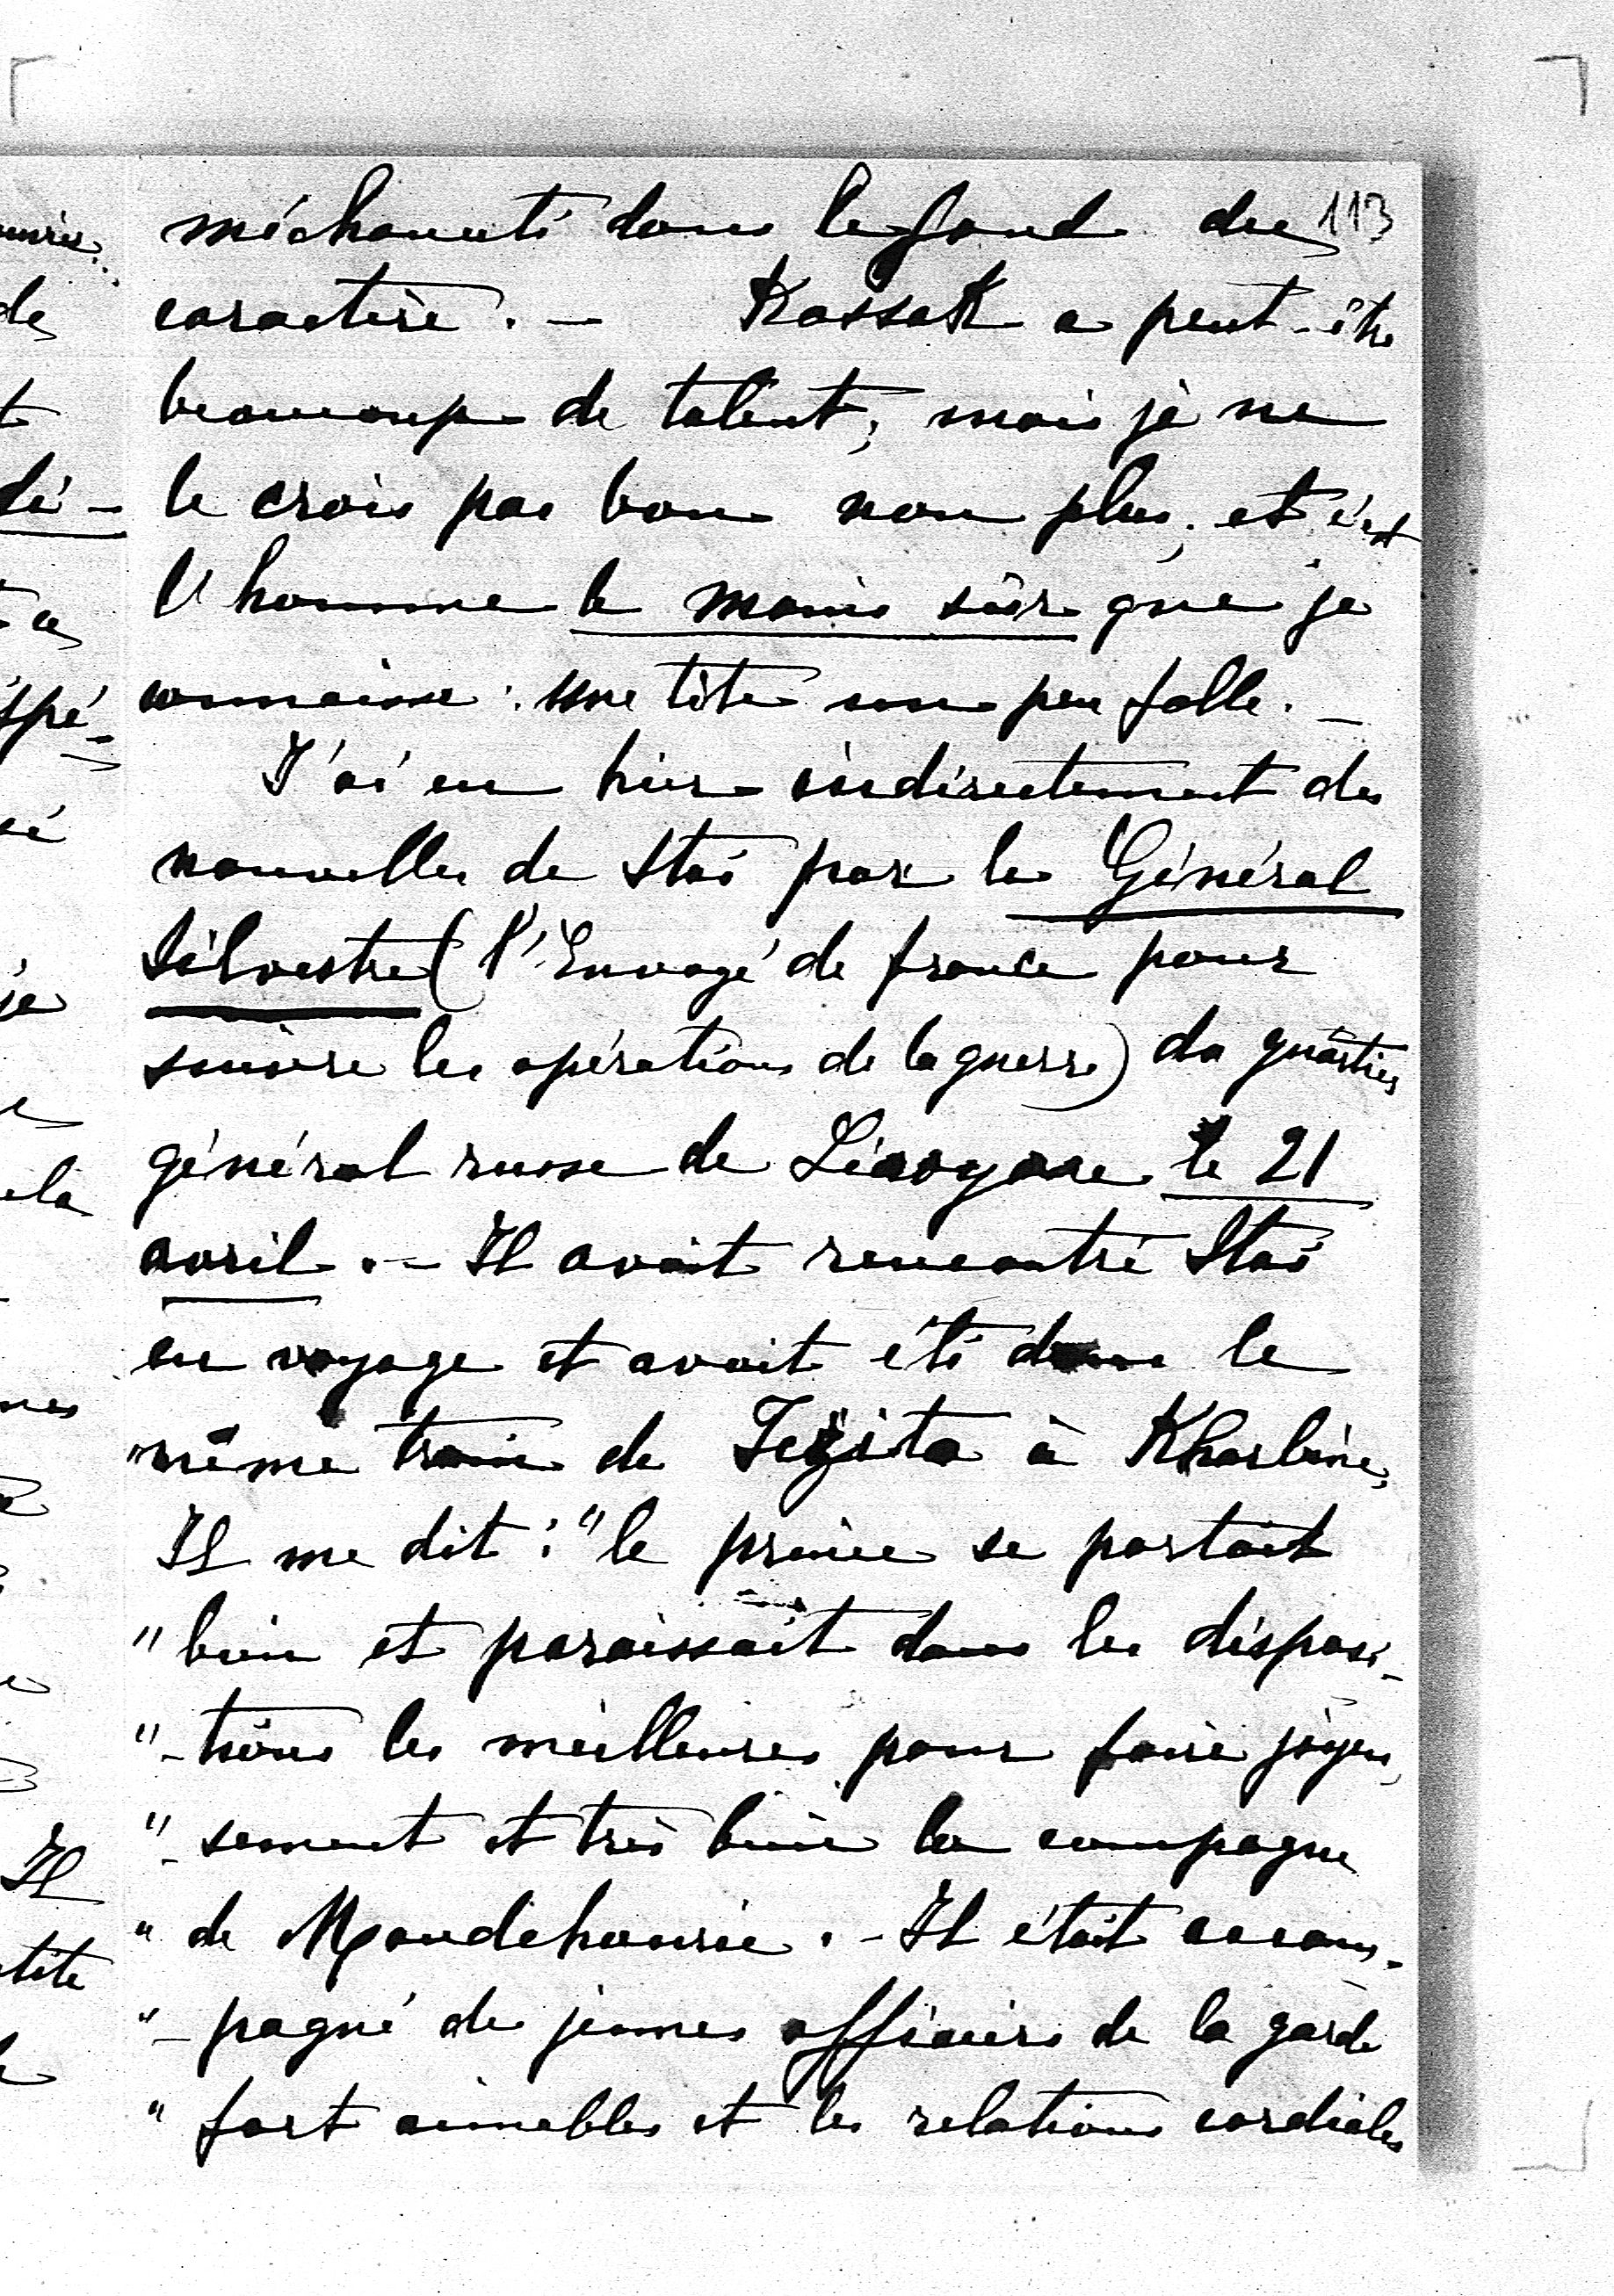 113
méchanceté dans le fond du
caractère. — KossaK a peut-être
beaucoup de talent, mais je ne
le crois pas bon non plus, et c'est
l'homme le moins sûr que je
connaisse : une tête un peu folle. —
J'ai eu hier indirectement des
nouvelles de Staś par le Général
Silvestre (l'Envoyé de france pour
suivre les opérations de la guerre) du quartier
général russe de Liaoyane le 21
avril. — Il avait rencontré Staś
en voyage et avait été dans le
même train de Tcżita à Kharbine,
Il me dit : "le prince se portait
" bien et paraissait dans les disposi-
" -tions les meilleures pour faire joyeu
" -sement et très bien la campagne
" de Mandchourie. - Il était accom-
" -pagné de jeunes officiers de la garde
" fort aimables et les relations cordiales